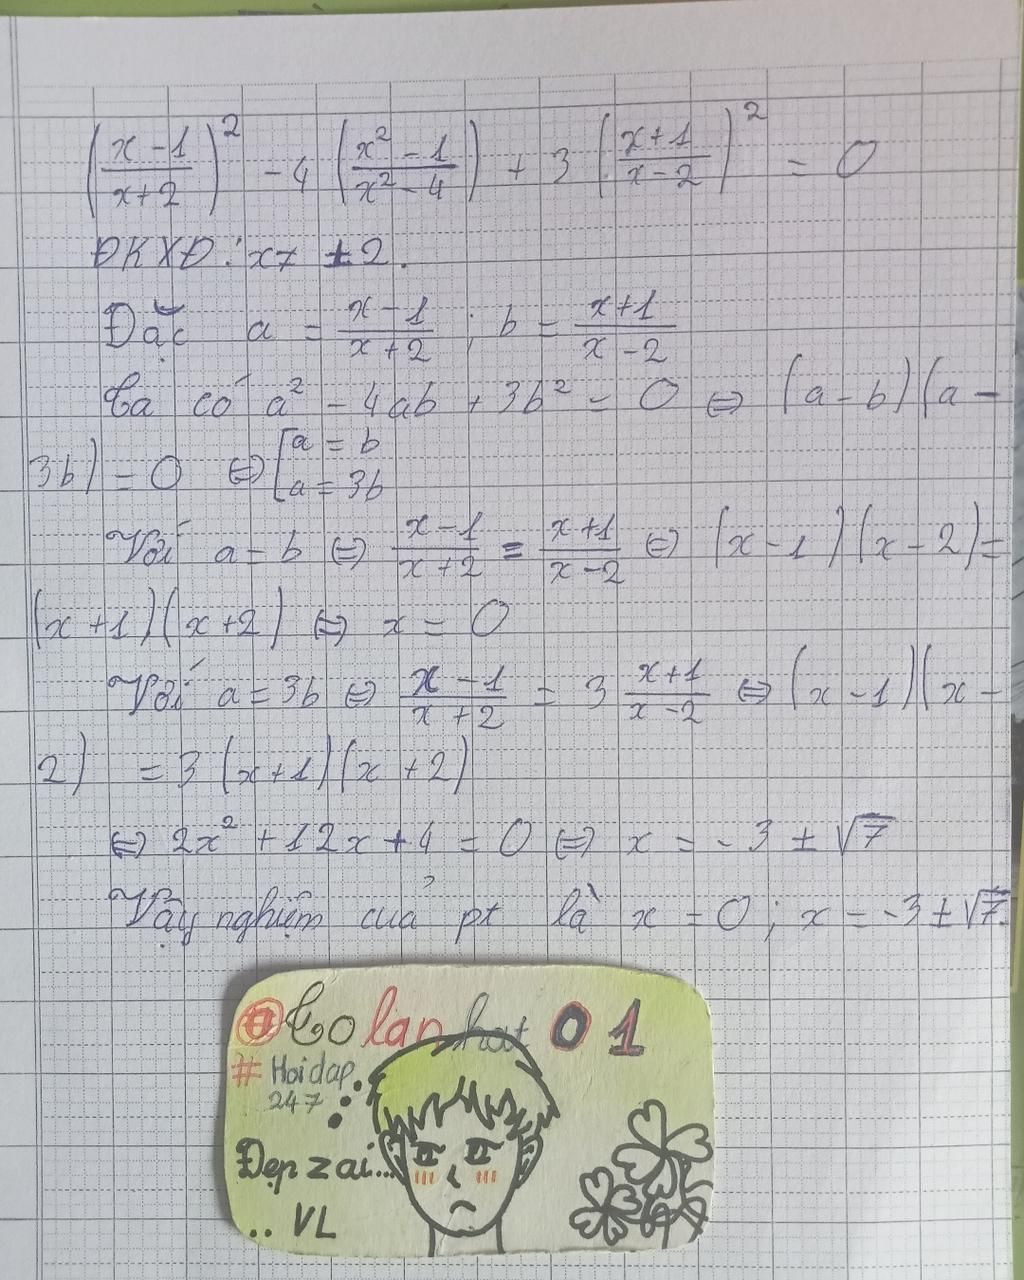 (x-1/x+2)² - 4(x²-1/x²-4) + 3(x+1/x-2)² = 0
ĐKXĐ: x≠ ±2.
Đặc a = x-1/x+2 ; b = x+1/x-2
Ta có a² - 4ab + 3b² = 0 ⇔ (a-b)(a-
3b) = 0 ⇔ [a = b
a = 3b
Với a = b ⇔ x-1/x+2 = x+1/x-2 ⇔ (x-1)(x-2)=
(x+1)(x+2) ⇔ x = 0
Với a = 3b ⇔ x-1/x+2 = 3 x+1/x-2 ⇔ (x-1)(x-
2) = 3(x+1)(x+2)
⇔ 2x² + 12x + 4 = 0 ⇔ x = -3 ± √7
Vậy nghiệm của pt là x = 0; x = -3 ± √7.
Colanhat 01
# Hoidap
247
Đẹp zai...
.. VL